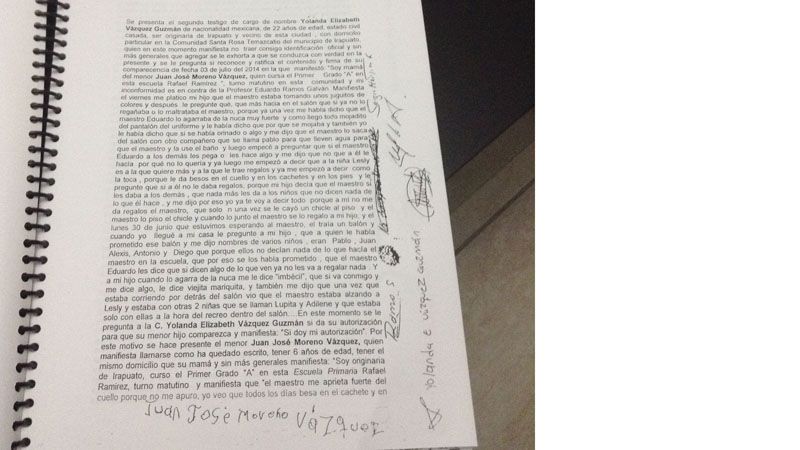 Se presenta el segundo testigo de cargo de nombre Yolanda Elizabeth
Vázquez Guzmán de nacionalidad mexicana, de 22 años de edad, estado civil
casada, ser originaria de Irapuato y vecino de esta ciudad , con domicilio
particular en la Comunidad Santa Rosa Temazcatio del municipio de Irapuato,
quien en este momento manifiesta no traer consigo identificación oficial y sin
más generales que agregar se le exhorta a que se conduzca con verdad en la
presente y se le pregunta si reconoce y ratifica el contenido y firma de su
comparecencia de fecha 03 de julio del 2014 en la que manifestó: "Soy mamá
del menor Juan José Moreno Vázquez, quien cursa el Primer Grado "A" en
esta escuela Rafael Ramírez ", turno matutino en esta comunidad y mi
inconformidad es en contra de la Profesor Eduardo Ramos Galván. Manifiesta
el viernes me platico mi hijo que el maestro estaba tomando unos juguitos de
colores y después le pregunté qué, que más hacia en el salón que si ya no lo
regañaba o lo maltrataba el maestro, porque ya una vez me había dicho que el
maestro Eduardo lo agarraba de la nuca muy fuerte y como llego todo mojadito
del pantalón del uniforme y le había dicho que por que se mojaba y también yo
le había dicho que si se había orinado o algo y me dijo que el maestro lo saca
del salón con otro compañero que se llama pablo para que tieven agua para
que el maestro y la use el baño y luego empecé a preguntar que si el maestro
Eduardo a los demás les pega o les hace algo y me dijo que no que a él le
hacia por qué no lo quería y ya luego me empezó a decir que a la niña Lesly
es a la que quiere más y a la que le trae regalos y ya me empezó a decir como
la toca , porque le da besos en el cuello y en los cachetes y en los pies y le
pregunte que si a él no le daba regalos, porque mi hijo decía que el maestro si
les daba a los demás , que nada más les da a los niños que no dicen nada de
lo que él hace , y me dijo por eso yo ya te voy a decir todo porque a mi no me
da regalos el maestro, que solo n una vez se le cayó un chicle al piso y el
maestro lo piso el chicle y cuando lo junto el maestro se lo regalo a mi hijo, y el
lunes 30 de junio que estuvimos esperando al maestro, el traía un balón y
cuando yo llegué a mi casa le pregunte a mi hijo , que a quien le había
prometido ese balón y me dijo nombres de varios niños , eran Pablo , Juan
Alexis, Antonio y Diego que porque ellos no decían nada de lo que hacia el
maestro en la escuela, que por eso se los había prometido , que el maestro
Eduardo les dice que si dicen algo de lo que ven ya no les va a regalar nada . Y
a mi hijo cuando lo agarra de la nuca me le dice "imbécil", que si va conmigo y
me dice algo, le dice viejita mariquita, y también me dijo que una vez que
estaba corriendo por detrás del salón vio que el maestro estaba alzando a
Lesly y estaba con otras 2 niñas que se llaman Lupita y Adilene y que estaba
solo con ellas a la hora del recreo dentro del salón....En este momento se le
pregunta a la C. Yolanda Elizabeth Vázquez Guzmán si da su autorización
para que su menor hijo comparezca y manifiesta: "Si doy mi autorización" Por
este motivo se hace presente el menor Juan José Moreno Vázquez, quien
manifiesta llamarse como ha quedado escrito, tener 6 años de edad, tener el
mismo domicilio que su mamá y sin más generales manifiesta: "Soy originaria
de Irapuato, curso el Primer Grado "A" en esta Escuela Primaria Rafael
Ramírez, turno matutino y manifiesta que "el maestro me aprieta fuerte del
cuello porque no me apuro, yo veo que todos los días besa en el cachete y en
Juan José Moreno Vázquez
Yolanda E Vázquez Guzmán